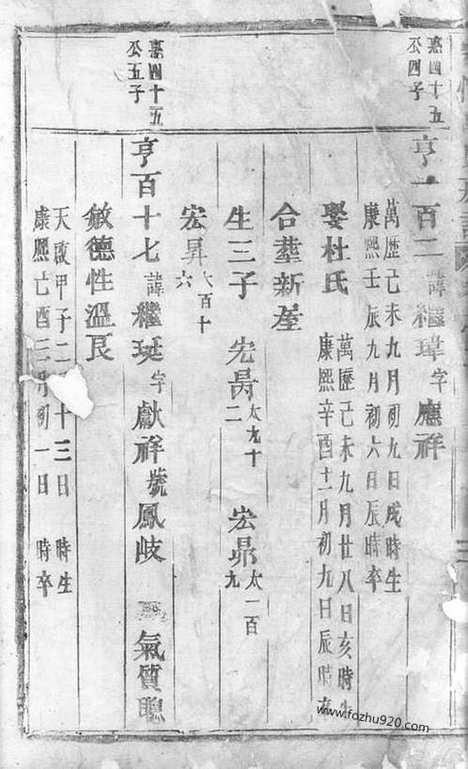 嘉四十五
公四子
亨一百二諱繼瑋字應祥
萬歷己未九月初九日戌時生
康熙壬辰九月初六日辰時卒
娶杜氏
萬歷己未九月廿八日亥時生
康熙辛酉十二月初九日辰時卒
合塟新屋
生三子 宏昺太九十二 宏昴太一百九
宏昇太百十六
嘉四十五
公五子
亨百十七諱繼珽字獻祥號鳳岐 氣質聰
敏德性溫良
天啟甲子二月十三日 時生
康熙己酉三月初一日 時卒
www.fozhu920.com